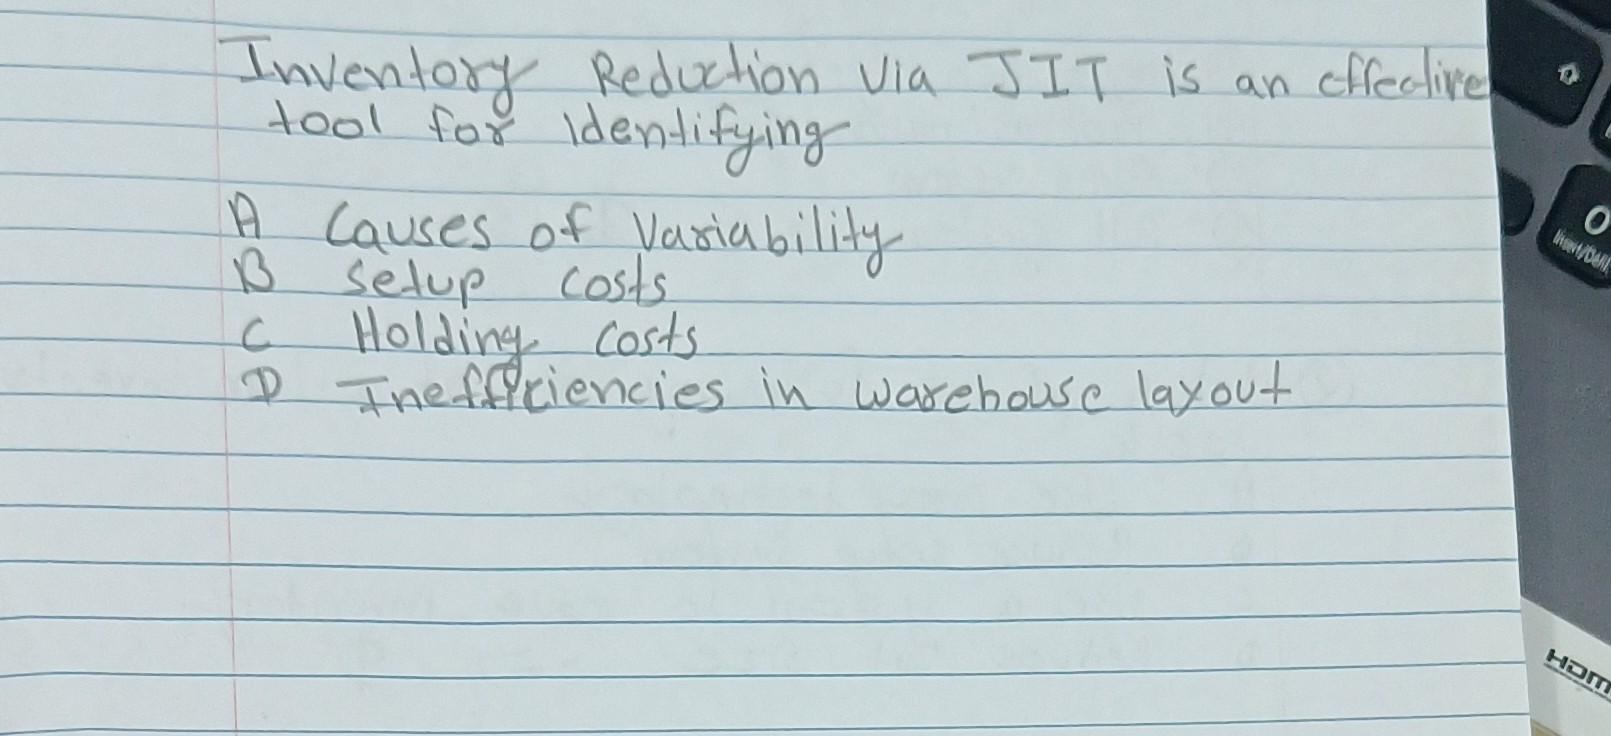 Inventory Reduction Via JIT is an effective
tool for identifying
A Causes of Variability
B Setup costs
C Holding costs
D Inefficiencies in warehouse layout
O
Insert/Del
HDMI